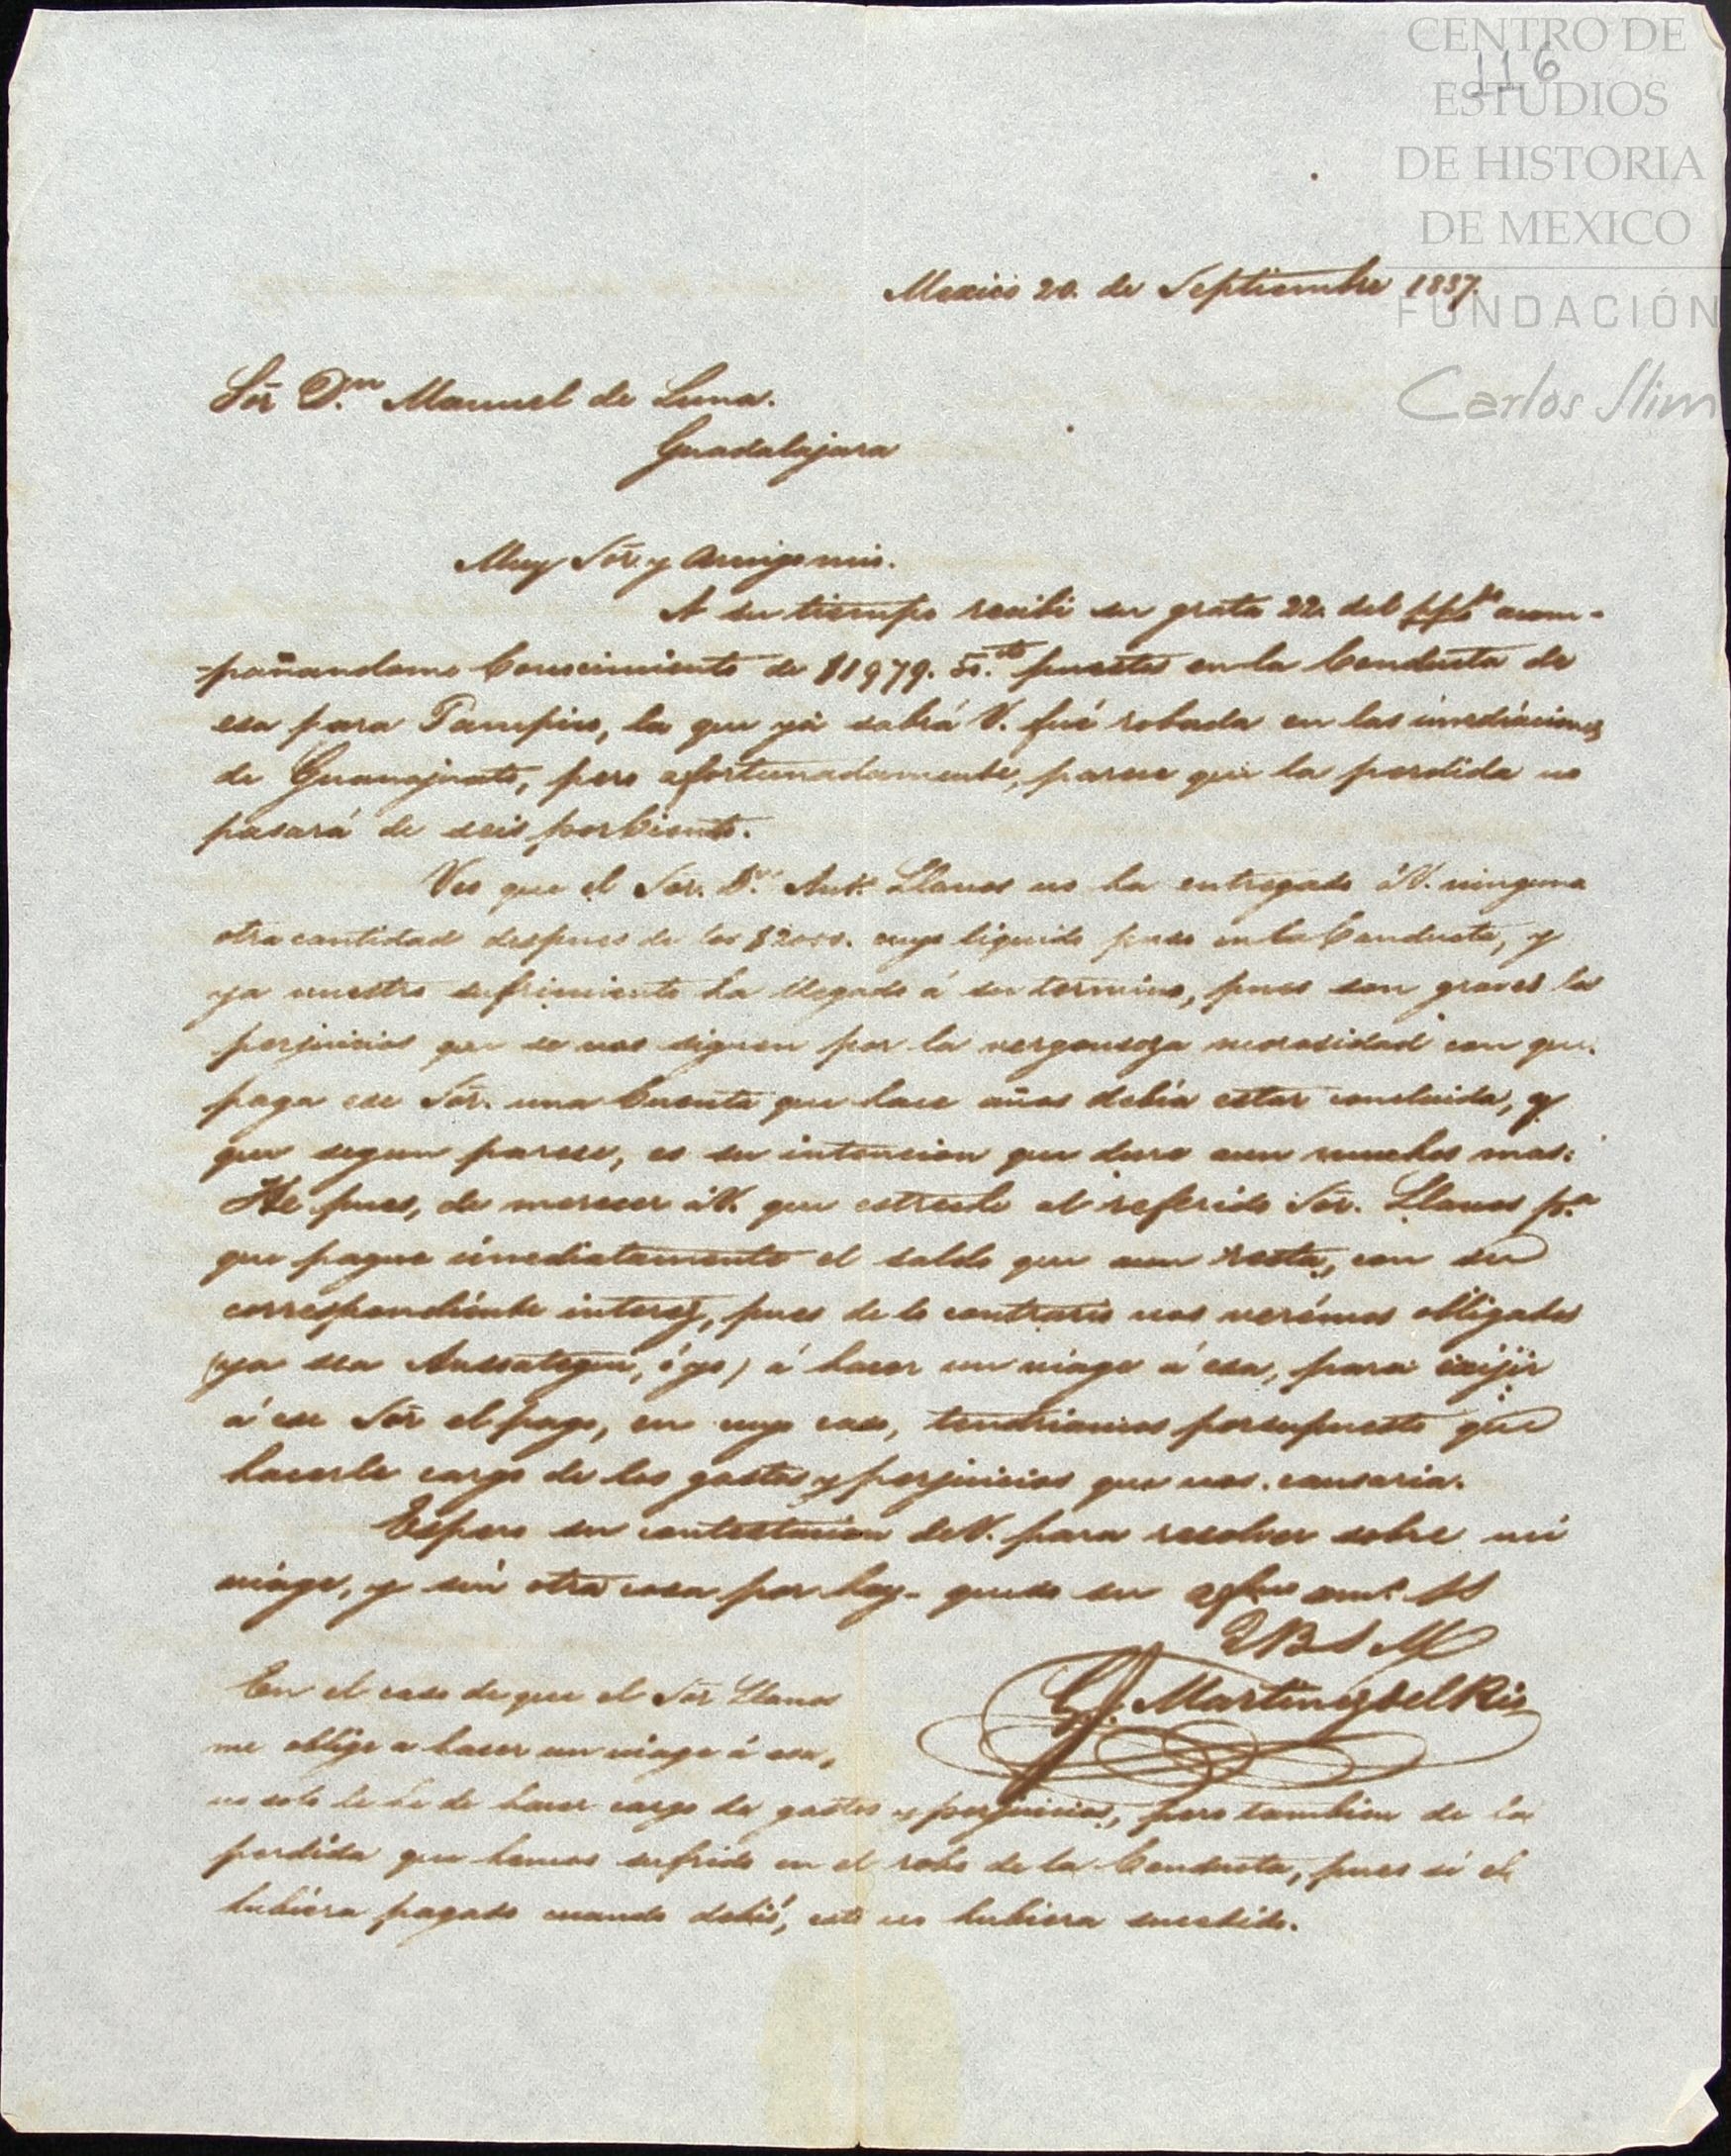 CENTRO DE
ESTUDIOS
DE HISTORIA
DE MEXICO
FUNDACIÓN
Carlos Slim
116
Mexico 20. de Septiembre 1837.
Sõr D.n Manuel de Luna.
Guadalajara
Muy Sõr. y Amigo mio.
A su tiempo recibi su grata 22. del ppdo acom-
-pañandome Conocimiento de $1979. 50. cts puestos en la Conducta de
esa para Tampico, la que yá sabrá V. fué robada en las inmediaciones
de Guanajuato, pero afortunadamente, parece que la perdida no
pasará de seis por Ciento.
Veo que el Sor. D.n Ant.o Llanos no ha entregado á V. ninguna
otra cantidad despues de los $2000. cuyo liquido puso en la Conducta, y
ya nuestro sufrimiento ha llegado á su termino, pues son graves los
perjuicios que se nos siguen por la vergonsoza morosidad con que
paga ese Sõr. una Cuenta que hace años debia estar concluida, y
que segun parece, es su intencion que dure aun muchos mas.
He pues, de merecer á V. que estreche al referido Sõr. Llanos p.a
que pague inmediatamente el saldo que aun resta, con su
correspondiente interez, pues de lo contrario nos verémos obligados
(ya sea Anssategui, ó yo) á hacer un viage á esa, para exijir
á ese Sõr el pago, en cuyo caso, tendriamos por supuesto que
hacerle cargo de los gastos y perjuicios que nos causaria.
Espero su contestacion de V. para resolver sobre mi
viage, y sin otra cosa por hoy quedo su afmo am.o SS
QBSM
G. Martinez del Rio
En el caso de que el Sõr Llanos
me oblige a hacer un viage á esa,
no solo le he de hacer cargo de gastos y perjuicios, pero tambien de la
perdida que hemos sufrido en el robo de la Conducta, pues si él
hubiera pagado cuando debió, esto no hubiera sucedido.